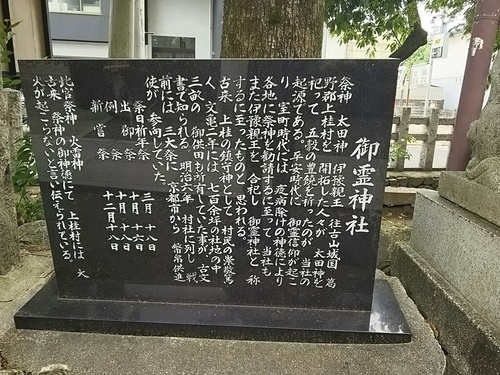 御霊神社
祭神 太田神 伊豫親王 往古山城国 葛
野郡上桂村を 開拓した人々が 太田神を
祀って 五穀の豊饒を祈ったのが 当社の
起源である。平安時代に 御霊信仰が起こ
り 室町時代には 疫病除けの神徳により
各地に祭神を勧請するに至って 当社も
また伊豫親王を 合祀し 御霊神社と 称
するに至ったものと 思われる。
古来 上桂の鎮守神として 村民の崇敬篤
く 文亀二年には 七百余坪の社地の中
三畝の 御供田も所有していた事が、古文
書で知られる 明治六年 村社に列し 戦
前には三大祭に 京都市から 幣帛供進
使が 参向していた。
祭日祈年祭 三月 十八日
出御祭 十月 十六日
例祭 十月 十八日
新嘗祭 十二月十八日
北宮祭神 火雷神
古来 祭神の御神徳にて 上桂村には 大
火が起こらないと言い伝えられている。